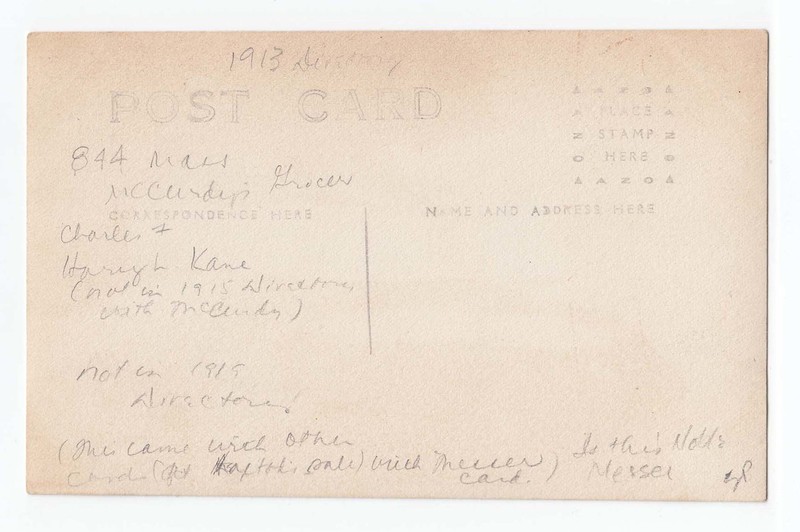 1913 Directory
POST CARD
AZO
PLACE
STAMP
HERE
AZO
844 Mass
McCurdy's Grocer
CORRESPONDENCE HERE
NAME AND ADDRESS HERE
Charles +
Kane
(not in 1915 Directory
with McCurdy)
not in 1919
Directory
(This came with other
cards ( sale) with Messer
card.)
Is this
Messer